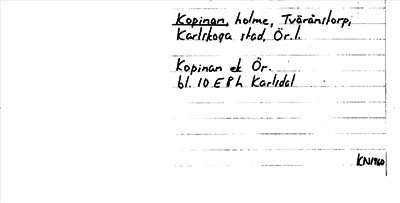 Kopinan, holme, Tväränstorp,
Karlskoga stad, Ör.l.
Kopinan ek Ör.
bl. 10 E 8 h Karlsdal
KN1960